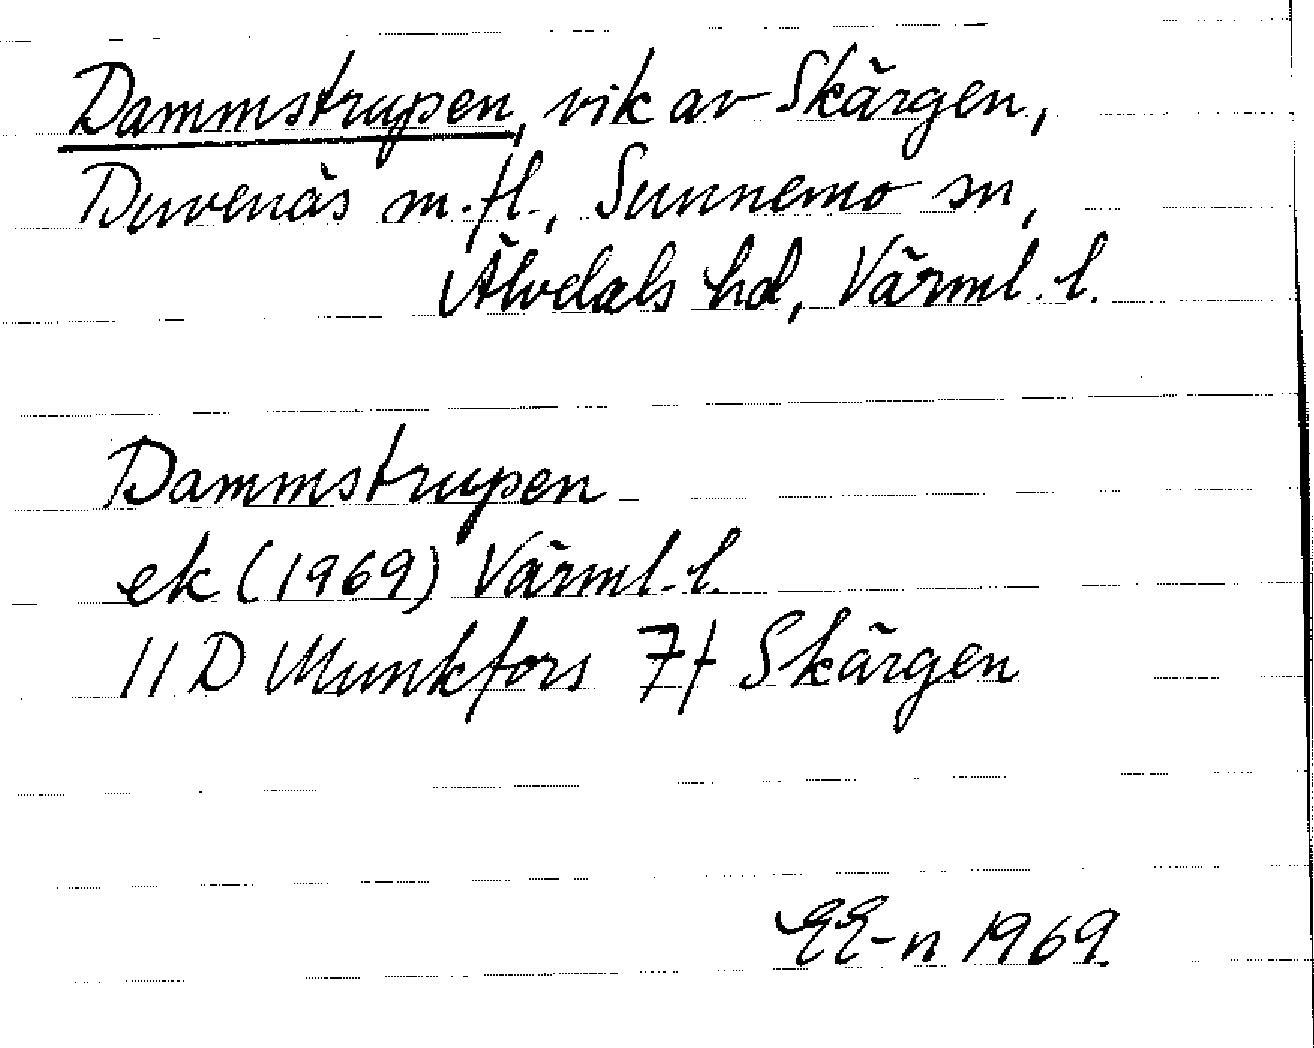 Dammstrupen, vik av Skärgen,
Duvenäs m.fl., Sunnemo sn,
Älvdals hd, Värml. l.
Dammstrupen
ek (1969) Värml. l.
11 D Munkfors 7f Skärgen
EE-n 1969